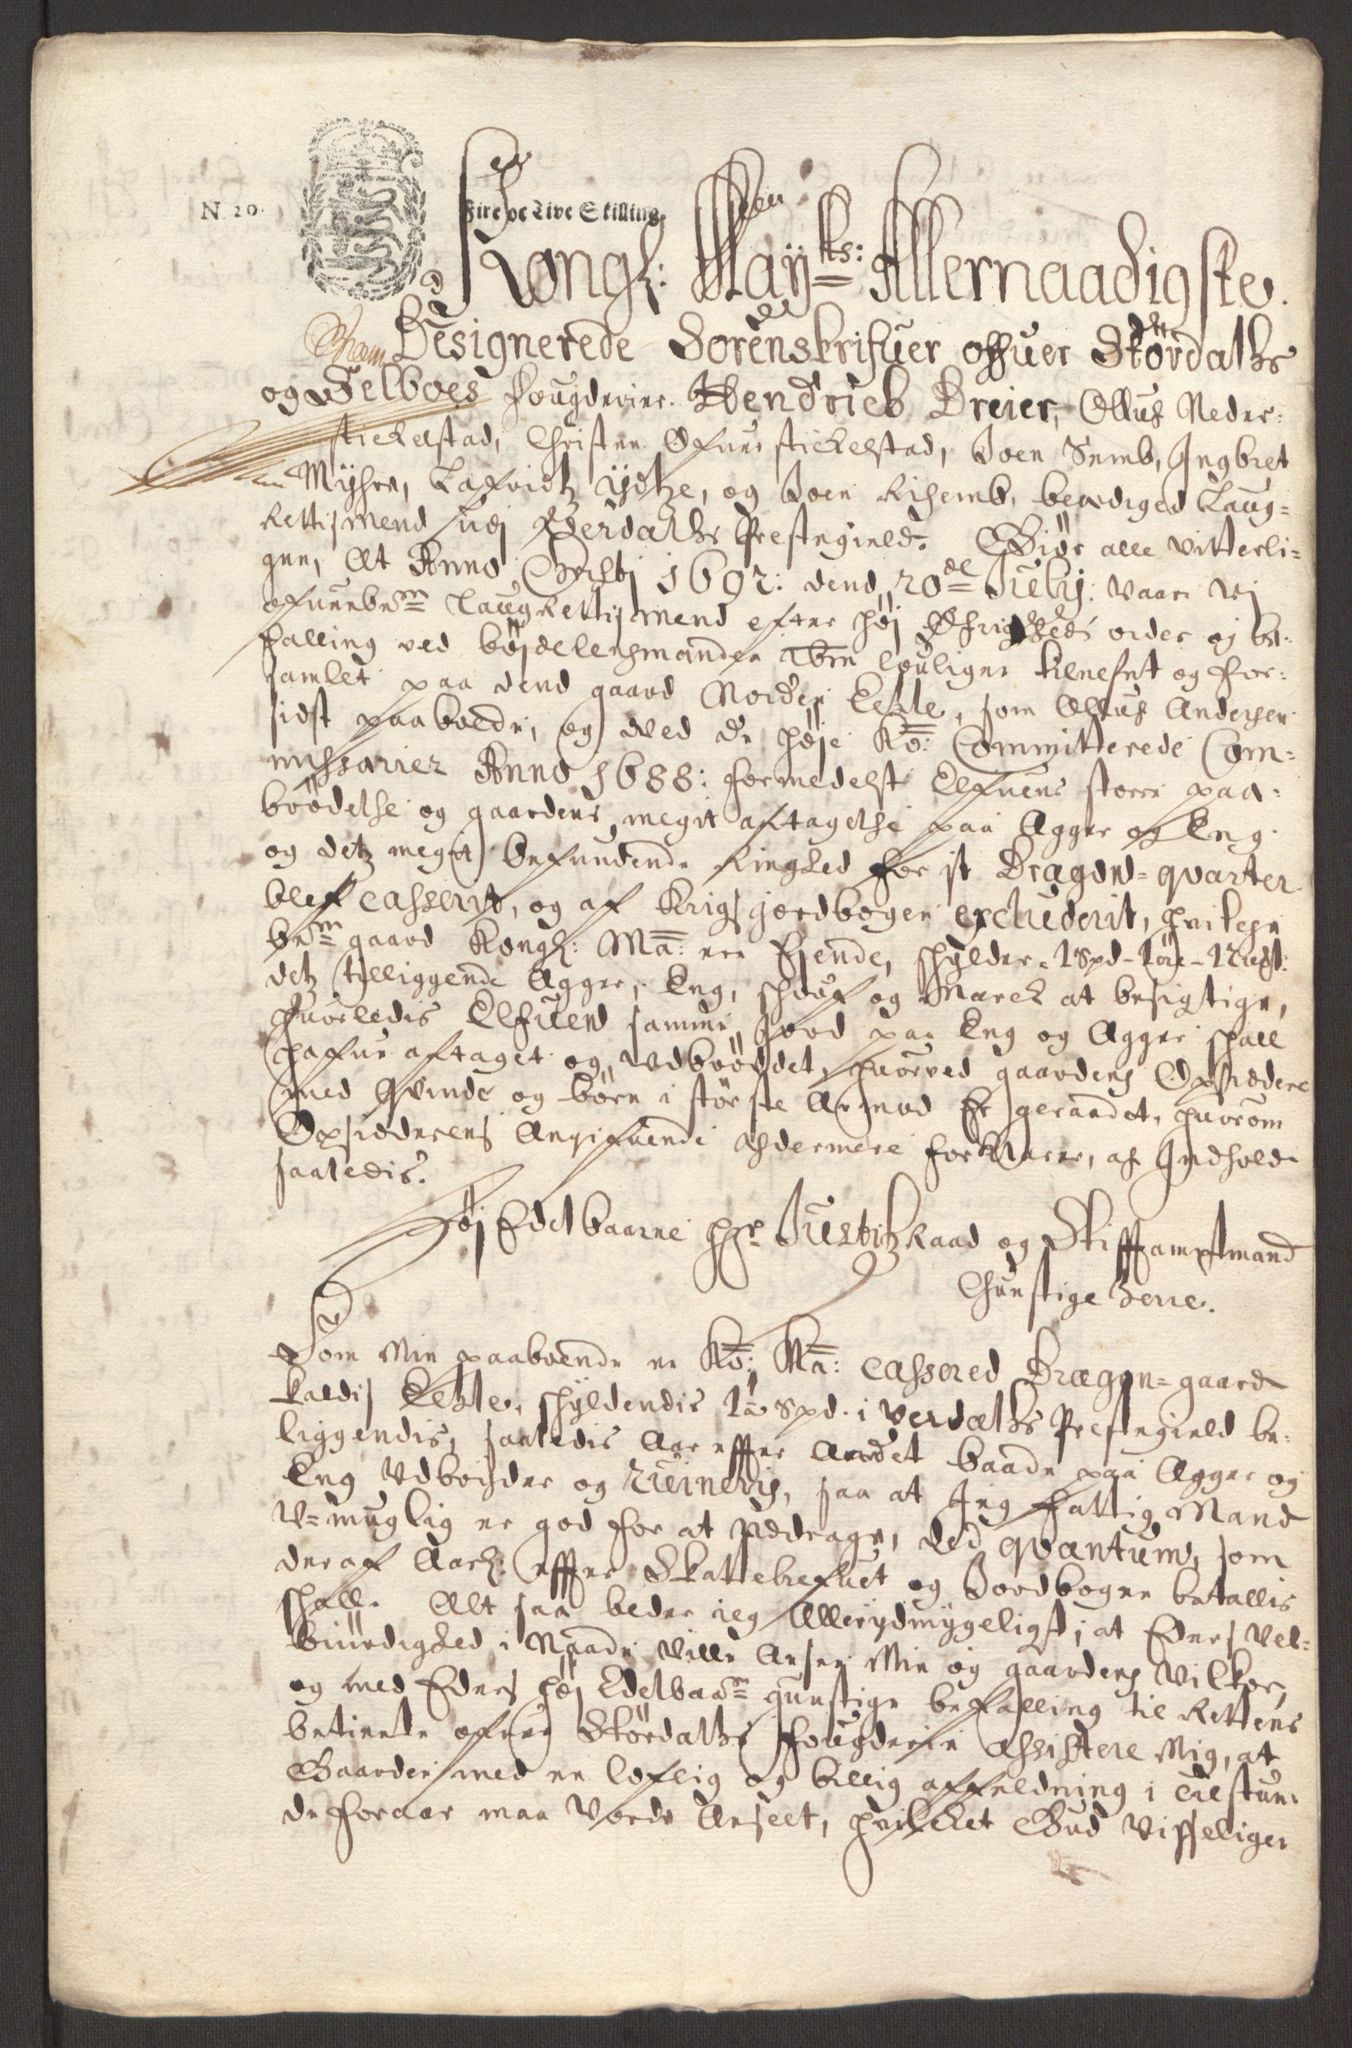 N. 20.
Fire oc Tive Skilling
Kongl: Mayts: Allernaadigste
Designerede Sorenskrifuer ofuer Stördahls
og Selboes fougderier Hendrich Dreier, Ollus Neder-
stickelstad, Christen Ofuer stickelstad, Joen Semb, Ingbret
Myhre, Lafridtz ÿdtze, og Joen Risemb, beædiged Laug-
Rettismend udj Værdahls Prestegield. Giör alle vitterli-
gen, At Anno Christj 1692: dend 20de Julij: Vaare Wj
ofuenbem.te LaugRettismend efter höj Öfrigheds order og be-
falling ved böjdelensmanden lovligen tilnefnt og for-
samlet paa dend gaard Norder Echle, som Ollus Andersen
sidst paaboede, og ved de höje Ko: Committerede Com-
missarier Anno 1688: formedelst Elfuens store paa-
brödelse og gaardens megit aftagelse paa Agger og Eng
og detz megit befundende Ringhed for it Dragon-qvarter
blef casserit, og af Krigsjordbogen excluderit, hvilchen
bem.te gaard Kongl: Ma: er Ejende, skylder 1 Spd - 1 öre -
detz tilliggende Agger, Eng, skouf og Marck at besigtige,
huorledis Elfuen samme Jord paa Eng og Agger skall
hafue aftaget og udbröddet, huorved gaardens Opsiddere
med Qvinde og börn i störste Armod er geraadet, huorom
Opsidderens Angifuende ydermere forklarer, af Indhold
saaledis.
Höj Edelbaarne hr. Justitz Raad og Stiffamptmand
Gunstige Herre.
Som Min paaboende er Ko: Ma: cassered Dragon-gaard
kaldis Echle, skyldendis 1 Spd. i Verdahls Prestegield be-
liggendis, saaledis Aar effter Andet baade paa Agger og
Eng Udbryder og Ruineris, saa at Jeg fattig Mand
U-muglig er god for at Uddrage, ded qvantum, som
deraf Aarl: effter Skattebrefuet og Jordbogen betallis
skall. Alt saa beder ieg Allerydmygeligst, at Eders Vel-
biurdighed i Naade ville Ansee Min og gaardens Vilkor,
og med Eders höj Edelbaa.n gunstige befalling til Rettens
betiente ofuer Stördahls fougderie assistere Mig, at
Gaarden med en loflig og billig affældning i tilstun-
de foraar maa Vorde Anseet, huilchet Gud Visseligen